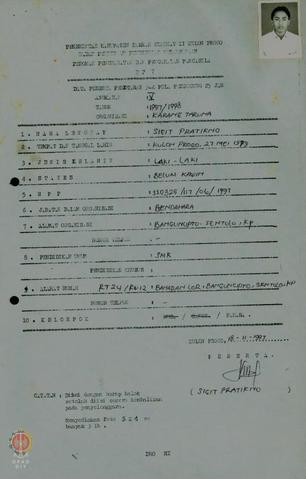 PEMERINTAH KABUPATEN DAERAH TINGKAT II KULON PROGO
PEDOMAN PENGHAYATAN DAN PENGAMALAN PANCASILA
BP 7
DATA PESERTA PENATARAN POLA PENDUKUNG 25 JAM
ANGKATAN : IV
TAHUN : 1997/1998
ORGANISASI : KARANG TARUNA
1. NAMA LENGKAP : SIGIT PRATIKNO
2. TEMPAT DAN TANGGAL LAHIR : KULON PROGO, 27 MEI 1979
3. JENIS KELAMIN : LAKI - LAKI
4. STATUS : BELUM KAWIN
5. N P P : 110325/117/06/1997
6. JABATAN DALAM ORGANISASI : BENDAHARA
7. ALAMAT ORGANISASI : BANGUNCIPTO, SENTOLO, KP
NOMOR TELPON : -
8. PENDIDIKAN UMUM : SMK
PENDIDIKAN KHUSUS : -
9. ALAMAT RUMAH : RT 24 / RW 12, LOR, BANGUNCIPTO, SENTOLO, KP
NOMOR TELPON : -
10. KELOMPOK :
KULON PROGO, 18-11-1997
P E S E R T A
( SIGIT PRATIKNO )
CATATAN : Diisi dengan huruf balok
setelah diisi segera kembalikan
pada penyelenggara.
Menyediakan Foto 3 x 4 cm
banyak 3 lb.